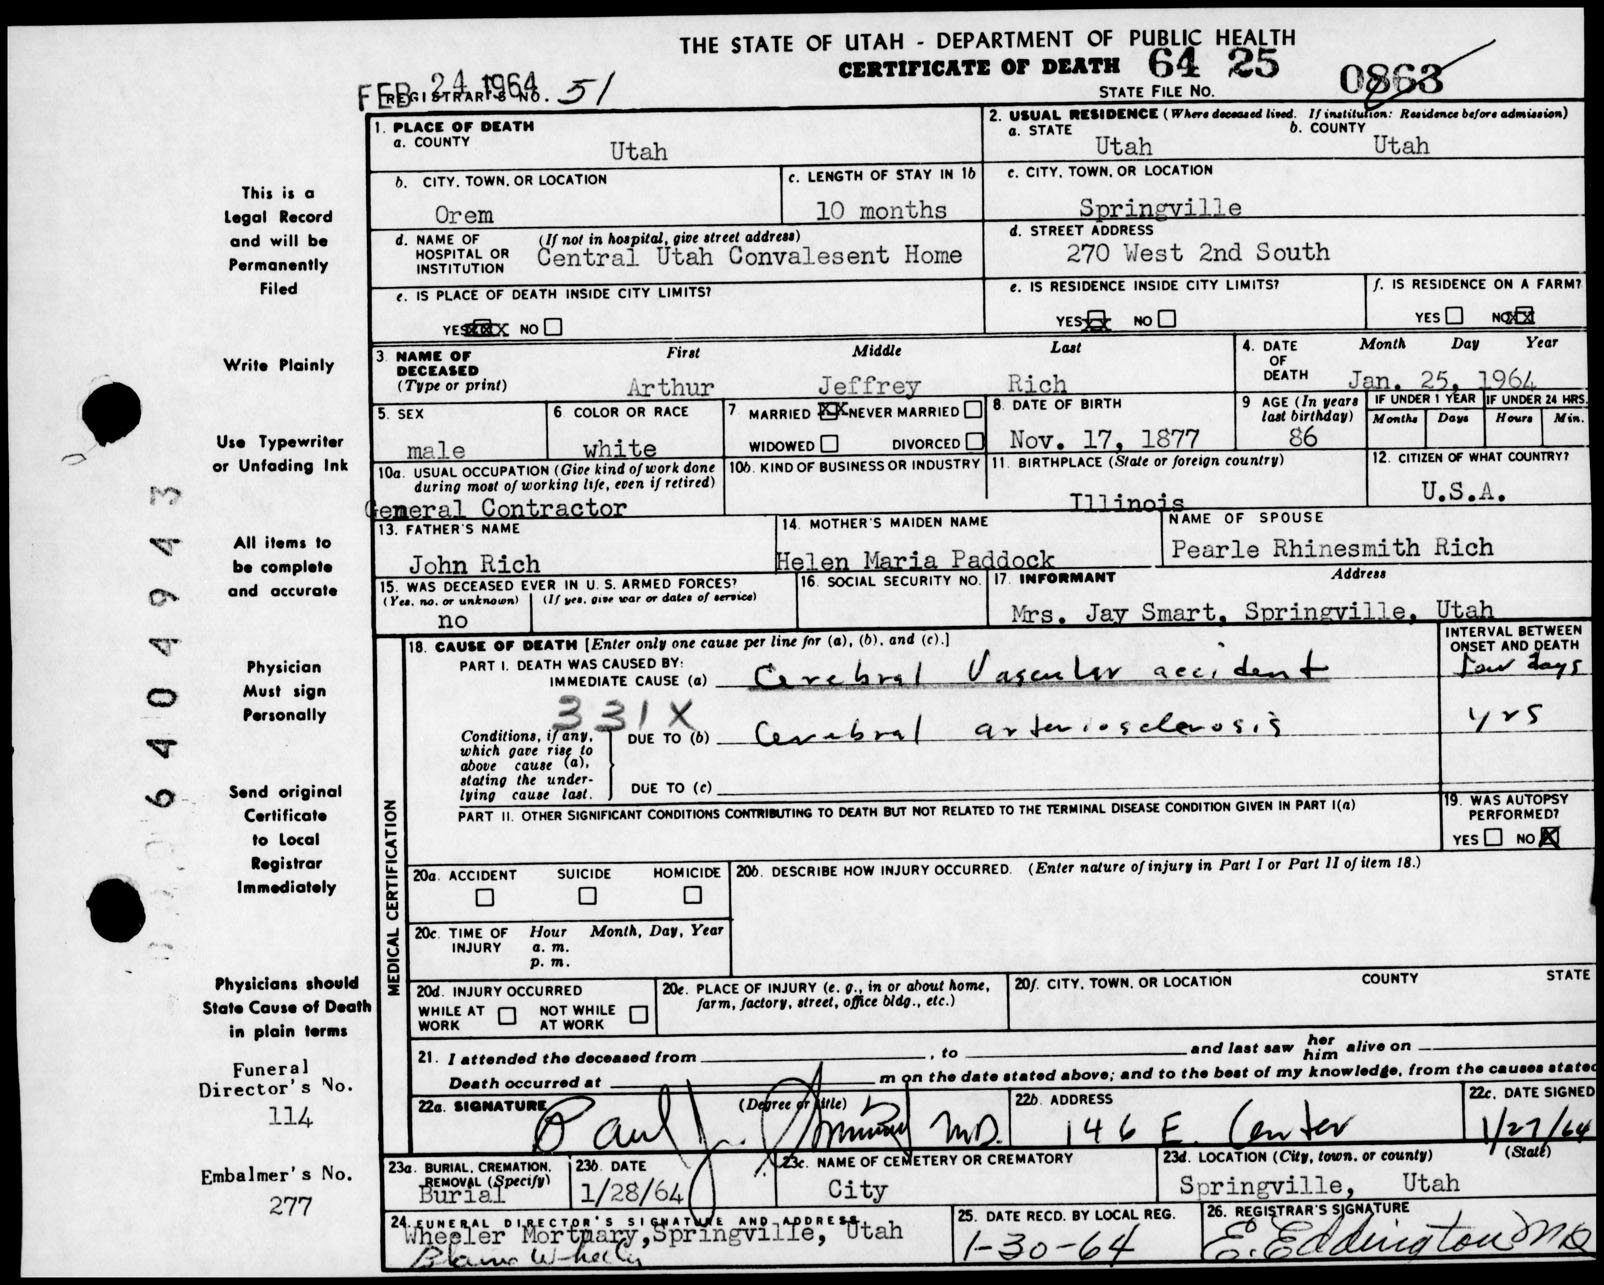 THE STATE OF UTAH - DEPARTMENT OF PUBLIC HEALTH
CERTIFICATE OF DEATH 64 25 0863
STATE FILE NO.
FEB 24 1964
REGISTRAR'S NO. 51
1. PLACE OF DEATH
a. COUNTY
Utah
2. USUAL RESIDENCE (Where deceased lived. If institution: Residence before admission)
a. STATE b. COUNTY
Utah Utah
b. CITY, TOWN, OR LOCATION
Orem
c. LENGTH OF STAY IN 1b
10 months
c. CITY, TOWN, OR LOCATION
Springville
d. NAME OF HOSPITAL OR INSTITUTION (If not in hospital, give street address)
Central Utah Convalesent Home
d. STREET ADDRESS
270 West 2nd South
e. IS PLACE OF DEATH INSIDE CITY LIMITS?
YES NO
e. IS RESIDENCE INSIDE CITY LIMITS?
YES NO
f. IS RESIDENCE ON A FARM?
YES NO
3. NAME OF DECEASED (Type or print)
First Middle Last
Arthur Jeffrey Rich
4. DATE OF DEATH
Month Day Year
Jan. 25, 1964
5. SEX
male
6 COLOR OR RACE
white
7 MARRIED NEVER MARRIED
WIDOWED DIVORCED
8. DATE OF BIRTH
Nov. 17, 1877
9 AGE (In years last birthday)
86
IF UNDER 1 YEAR
Months Days
IF UNDER 24 HRS.
Hours Min.
10a. USUAL OCCUPATION (Give kind of work done during most of working life, even if retired)
General Contractor
10b. KIND OF BUSINESS OR INDUSTRY
11. BIRTHPLACE (State or foreign country)
Illinois
12. CITIZEN OF WHAT COUNTRY?
U.S.A.
13. FATHER'S NAME
John Rich
14. MOTHER'S MAIDEN NAME
Helen Maria Paddock
NAME OF SPOUSE
Pearle Rhinesmith Rich
15. WAS DECEASED EVER IN U. S. ARMED FORCES?
(Yes, no, or unknown) (If yes, give war or dates of service)
no
16. SOCIAL SECURITY NO.
17. INFORMANT Address
Mrs. Jay Smart, Springville, Utah
MEDICAL CERTIFICATION
18. CAUSE OF DEATH [Enter only one cause per line for (a), (b), and (c).]
PART I. DEATH WAS CAUSED BY:
IMMEDIATE CAUSE (a) Cerebral Vascular accident
331X
INTERVAL BETWEEN ONSET AND DEATH
few days
Conditions, if any, which gave rise to above cause (a), stating the underlying cause last.
DUE TO (b) Cerebral arteriosclerosis
yrs
DUE TO (c)
PART II. OTHER SIGNIFICANT CONDITIONS CONTRIBUTING TO DEATH BUT NOT RELATED TO THE TERMINAL DISEASE CONDITION GIVEN IN PART I(a)
19. WAS AUTOPSY PERFORMED?
YES NO
20a. ACCIDENT SUICIDE HOMICIDE
20b. DESCRIBE HOW INJURY OCCURRED. (Enter nature of injury in Part I or Part II of item 18.)
20c. TIME OF INJURY
Hour Month, Day, Year
a. m.
p. m.
20d. INJURY OCCURRED
WHILE AT WORK NOT WHILE AT WORK
20e. PLACE OF INJURY (e. g., in or about home, farm, factory, street, office bldg., etc.)
20f. CITY, TOWN, OR LOCATION COUNTY STATE
21. I attended the deceased from , to and last saw her him alive on
Death occurred at m on the date stated above; and to the best of my knowledge, from the causes stated
22a. SIGNATURE (Degree or title)
Paul J. M.D.
22b. ADDRESS
146 E. Center
22c. DATE SIGNED
1/27/64
23a. BURIAL, CREMATION, REMOVAL (Specify)
Burial
23b. DATE
1/28/64
23c. NAME OF CEMETERY OR CREMATORY
City
23d. LOCATION (City, town, or county) (State)
Springville, Utah
24. FUNERAL DIRECTOR'S SIGNATURE AND ADDRESS
Wheeler Mortuary, Springville, Utah
25. DATE RECD. BY LOCAL REG.
1-30-64
26. REGISTRAR'S SIGNATURE
E. Eddington MD
This is a
Legal Record
and will be
Permanently
Filed
Write Plainly
Use Typewriter
or Unfading Ink
All items to
be complete
and accurate
Physician
Must sign
Personally
Send original
Certificate
to Local
Registrar
Immediately
Physicians should
State Cause of Death
in plain terms
Funeral
Director's No.
114
Embalmer's No.
277